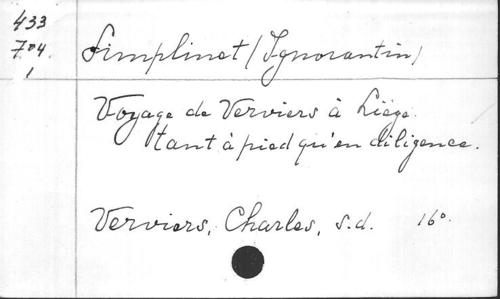 433
704
1
Simplinet (Ignorantin)
Voyage de Verviers à Liége
tant à pied qu'en diligence.
Verviers, Charles, s.d. 16°